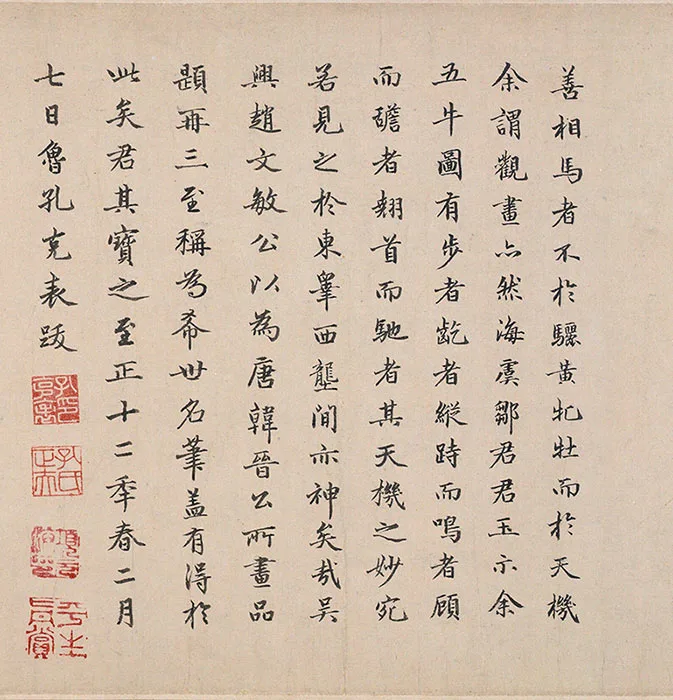 善相馬者不於驪黃牝牡而於天機
余謂觀畫亦然海虞鄒君君玉示余
五牛圖有步者齕者縱跱而鳴者顧
而䑛者翹首而馳者其天機之妙宛
若見之於東睪西壟間亦神矣哉吳
興趙文敏公以為唐韓晉公所畫品
題再三至稱為希世名筆盖有淂於
此矣君其寶之至正十二年春二月
七日魯孔克表跋